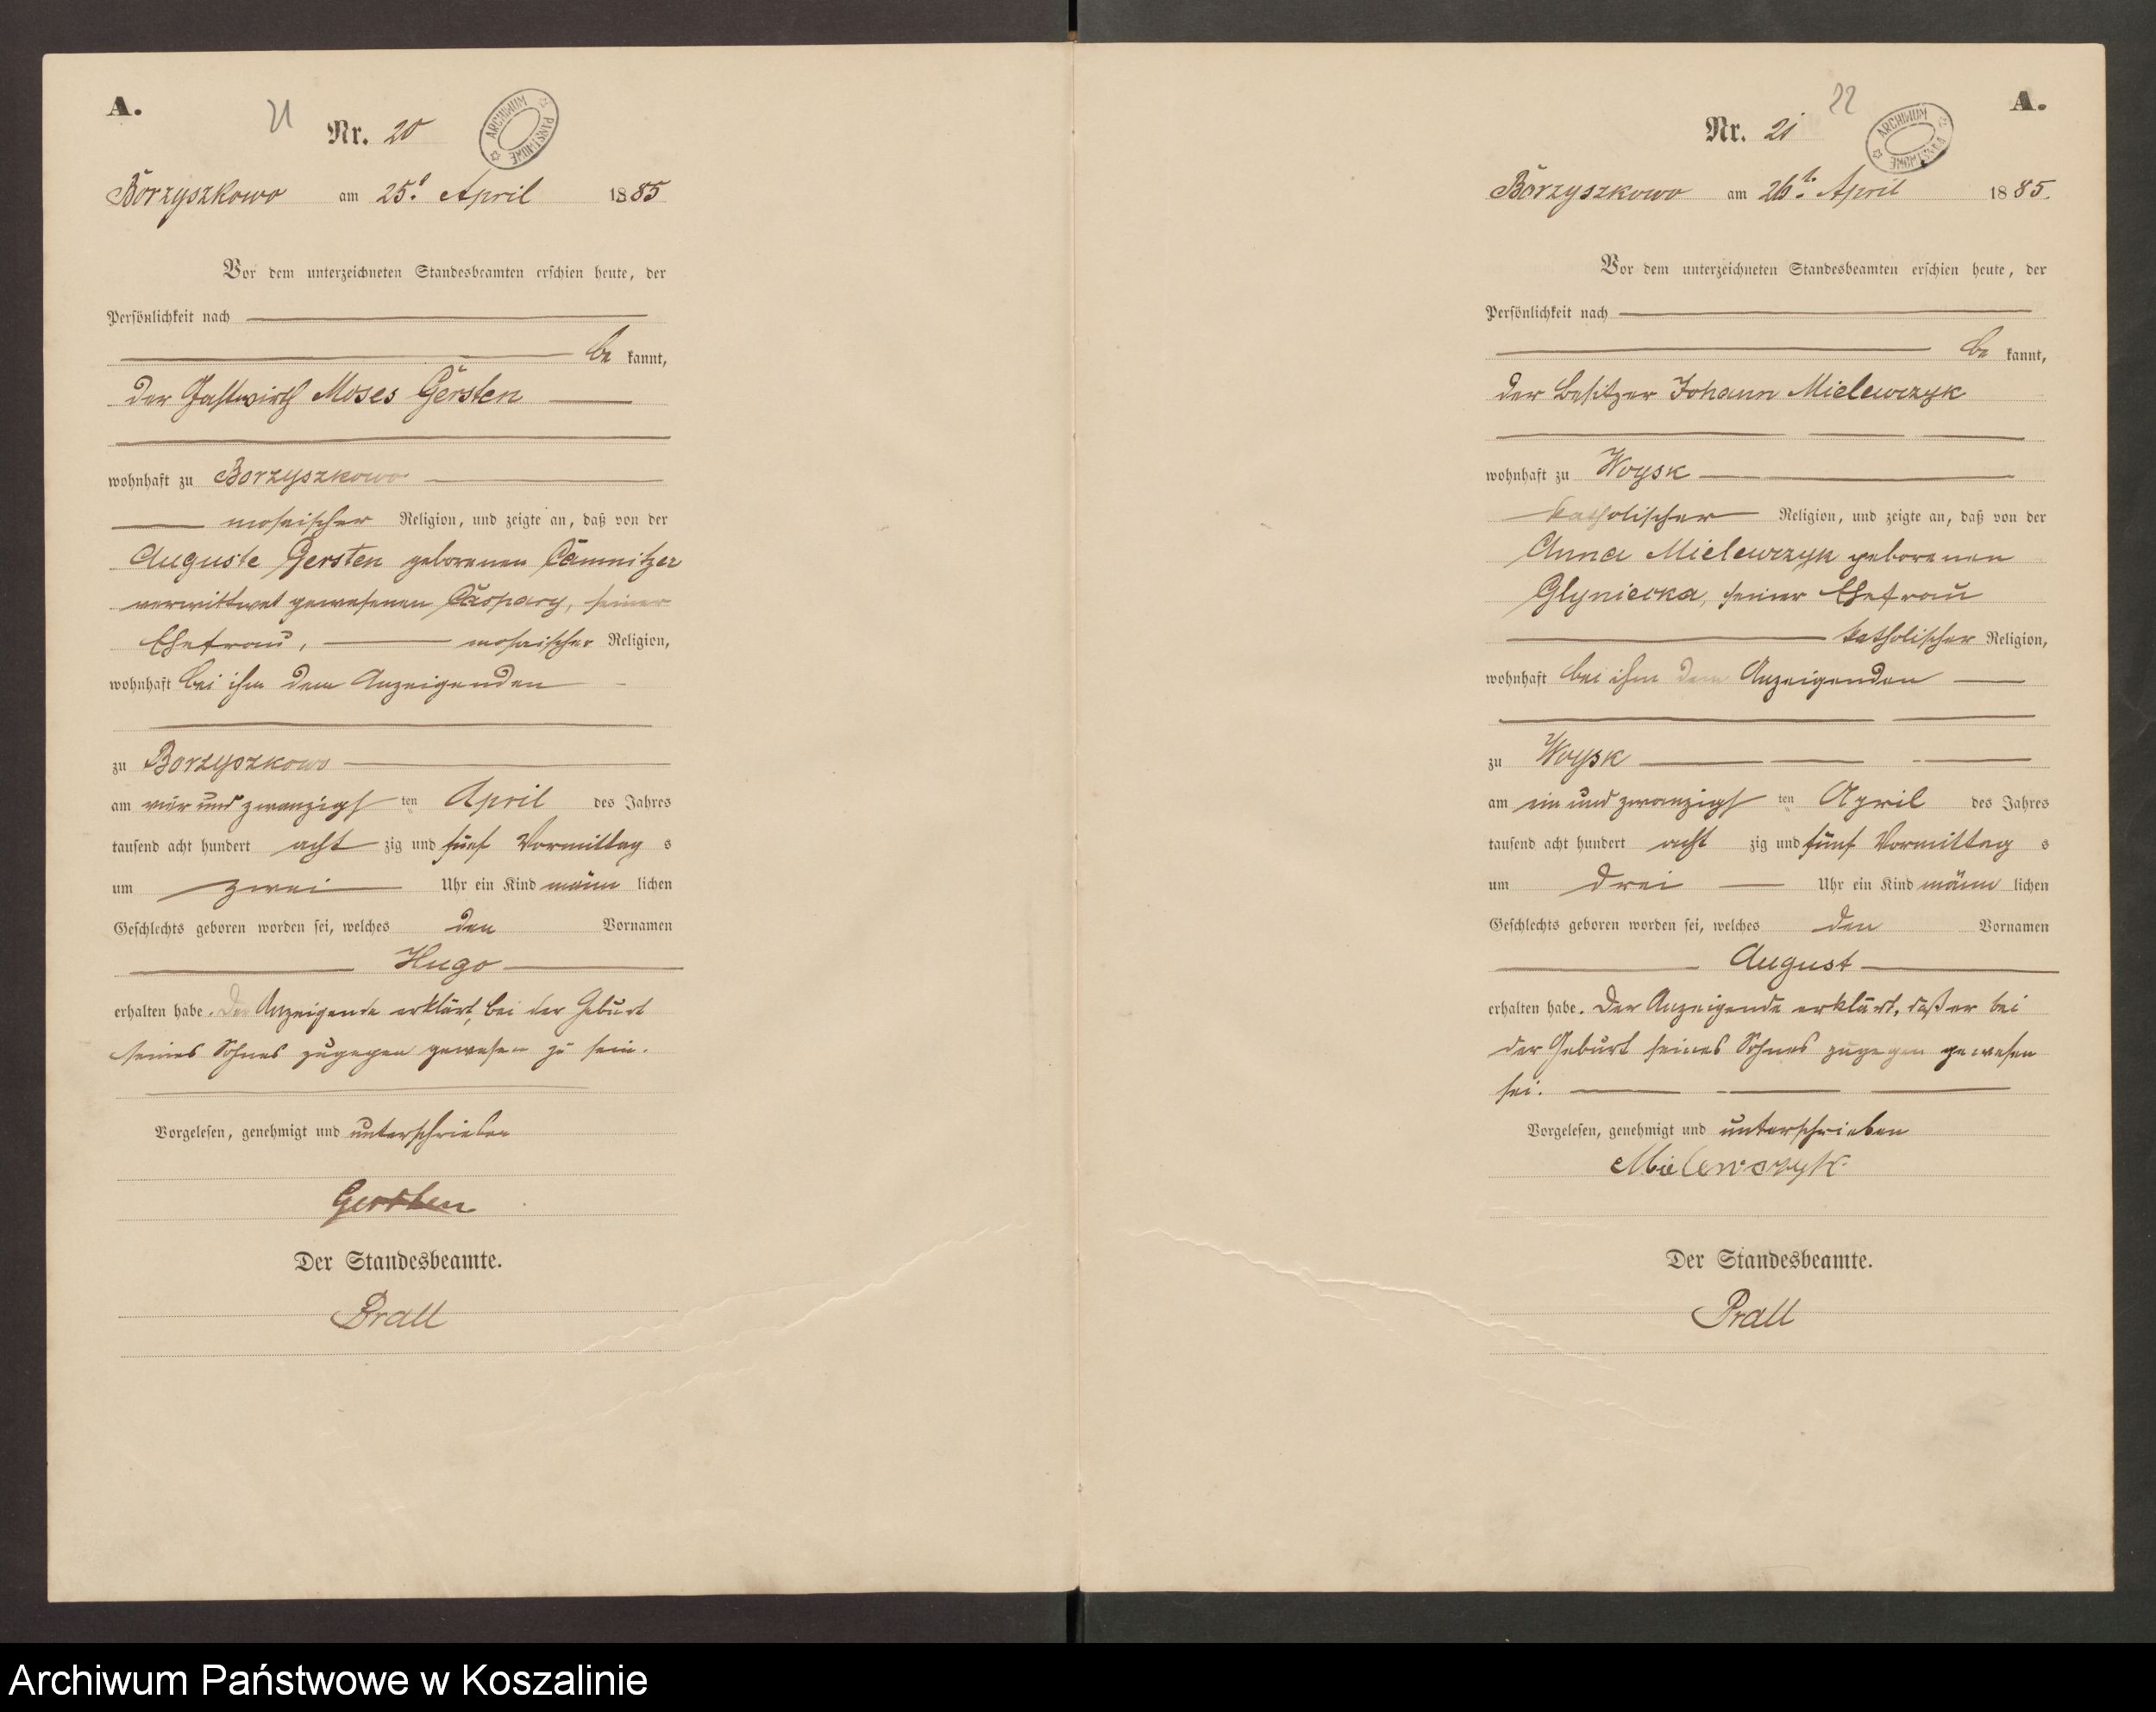 A.
21
Nr. 20
ARCHIWUM PAŃSTWOWE
Borzyszkowo am 25t. April 1885
Vor dem unterzeichneten Standesbeamten erschien heute, der
Persönlichkeit nach
be kannt,
der Gastwirth Moses Gersten
wohnhaft zu Borzyszkowo
mosaischer Religion, und zeigte an, daß von der
Auguste Gersten geborenen Camnitzer
verwittwet gewesenen Caspary, seiner
Ehefrau, mosaischer Religion,
wohnhaft bei ihm dem Anzeigenden
zu Borzyszkowo
am vier und zwanzigsten April des Jahres
tausend acht hundert acht zig und fünf Vormittags
um zwei Uhr ein Kind männ lichen
Geschlechts geboren worden sei, welches den Vornamen
Hugo
erhalten habe. Der Anzeigende erklärt, bei der Geburt
seines Sohnes zugegen gewesen zu sein.
Vorgelesen, genehmigt und unterschrieben
Gersten
Der Standesbeamte.
Prall
A.
22
Nr. 21
ARCHIWUM PAŃSTWOWE
Borzyszkowo am 26t. April 1885.
Vor dem unterzeichneten Standesbeamten erschien heute, der
Persönlichkeit nach
be kannt,
der Besitzer Johann Mielewczyk
wohnhaft zu Woysk
katholischer Religion, und zeigte an, daß von der
Anna Mielewczyk geborenen
Glyniecka, seiner Ehefrau
katholischer Religion,
wohnhaft bei ihm dem Anzeigenden
zu Woysk
am ein und zwanzigsten April des Jahres
tausend acht hundert acht zig und fünf Vormittags
um drei Uhr ein Kind männ lichen
Geschlechts geboren worden sei, welches den Vornamen
August
erhalten habe. Der Anzeigende erklärt, daß er bei
der Geburt seines Sohnes zugegen gewesen
sei.
Vorgelesen, genehmigt und unterschrieben
Mielewczyk.
Der Standesbeamte.
Prall
Archiwum Państwowe w Koszalinie